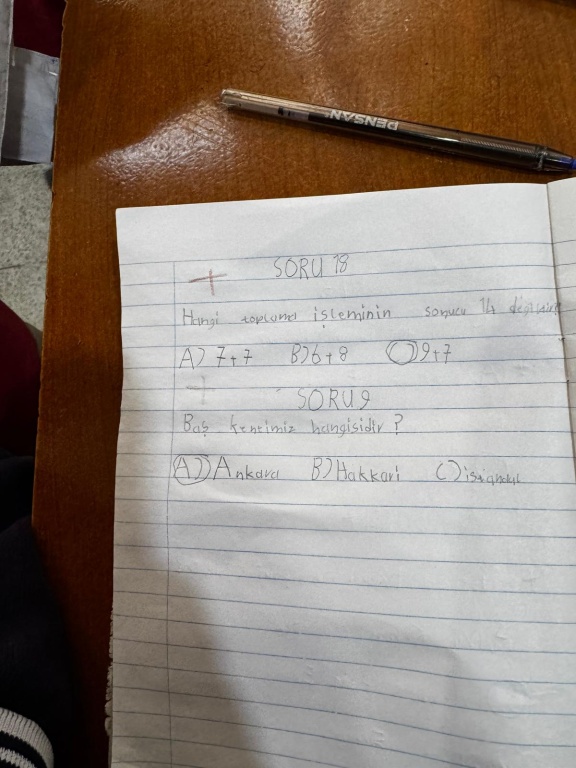 PENSAN
SORU 18
Hangi toplama işleminin sonucu 14 değildir
A) 7+7 B) 6+8 C) 9+7
SORU 9
Baş kentimiz hangisidir?
A) Ankara B) Hakkari C) istanbul